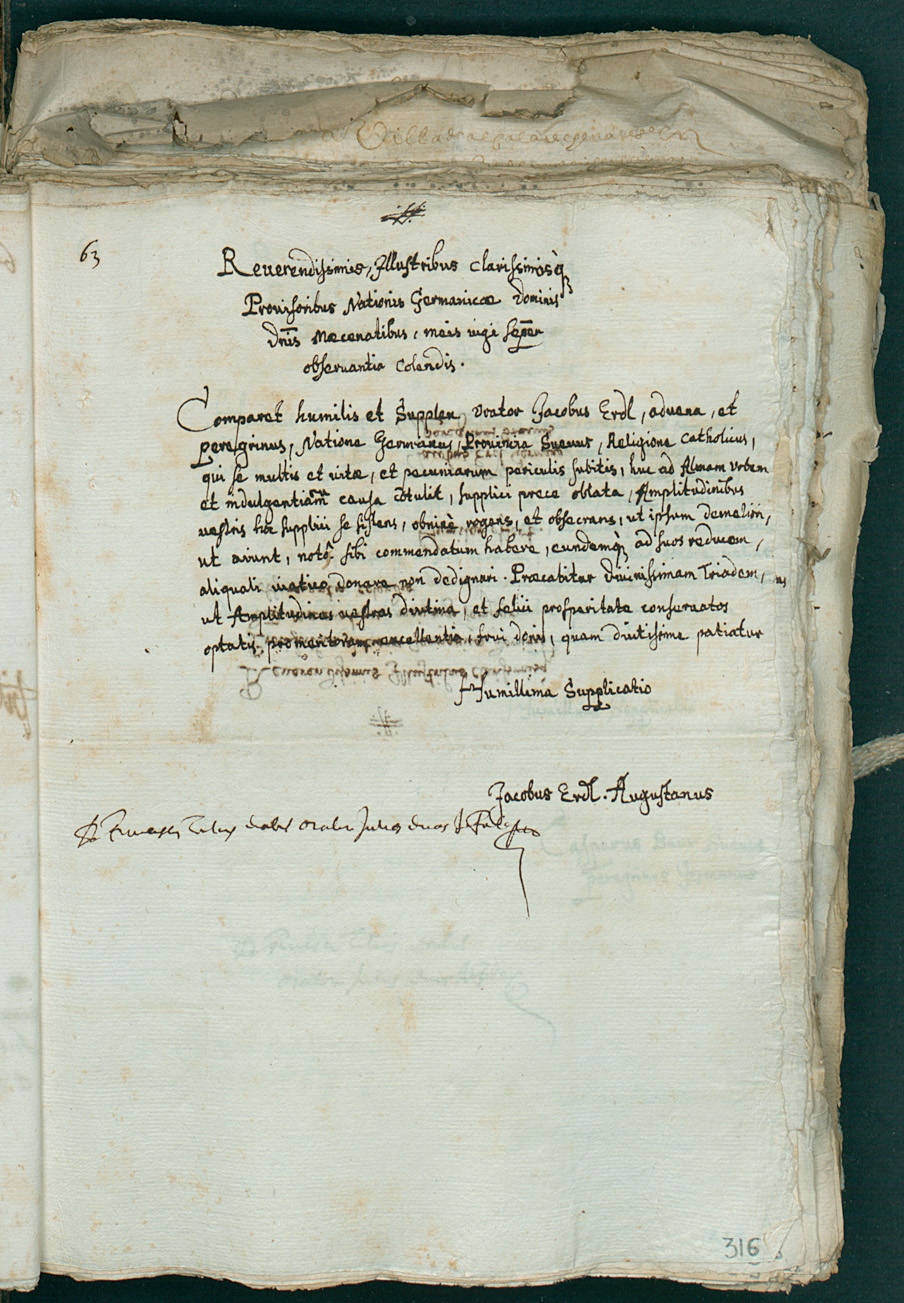 63
Reuerendissimis, Illustribus Clarissimosq́
Prouisoribus Nationis Germanicæ Dominis
Dñis Mœcenatibus, meis iugi sep̄er
obseruantia Colendis.
Comparet humilis et Supplex Orator Jacobus Erdl, aduena, et
peregrinus, Natione Germanus, Prouincia Sueuus, Religione Catholicus,
qui se multis et uitæ, et pecuniarum periculis subitis, huc ad Almam Vrbem
et indulgentiarū causa 9tulit, supplici prece oblata, Amplitudinibus
uestris hoc supplici se sistens, obnixè rogans, et obsecrans, ut ipsum de meliori,
ut aiunt, notâ sibi commendatum habere, eundemq́ ad suos reducem,
aliquali uiatico donare non dedignari. Præcabitur Diuinissimam Triadem,
ut Amplitudines uestras diutina, et felici prosperitate conseruatos
optatis, promeritorum excellentia, frui donis, quam diutissime patiatur
Humillima Supplicatio
Jacobus Erdl. Augustanus
D. dabit Oratori Julios duos
316